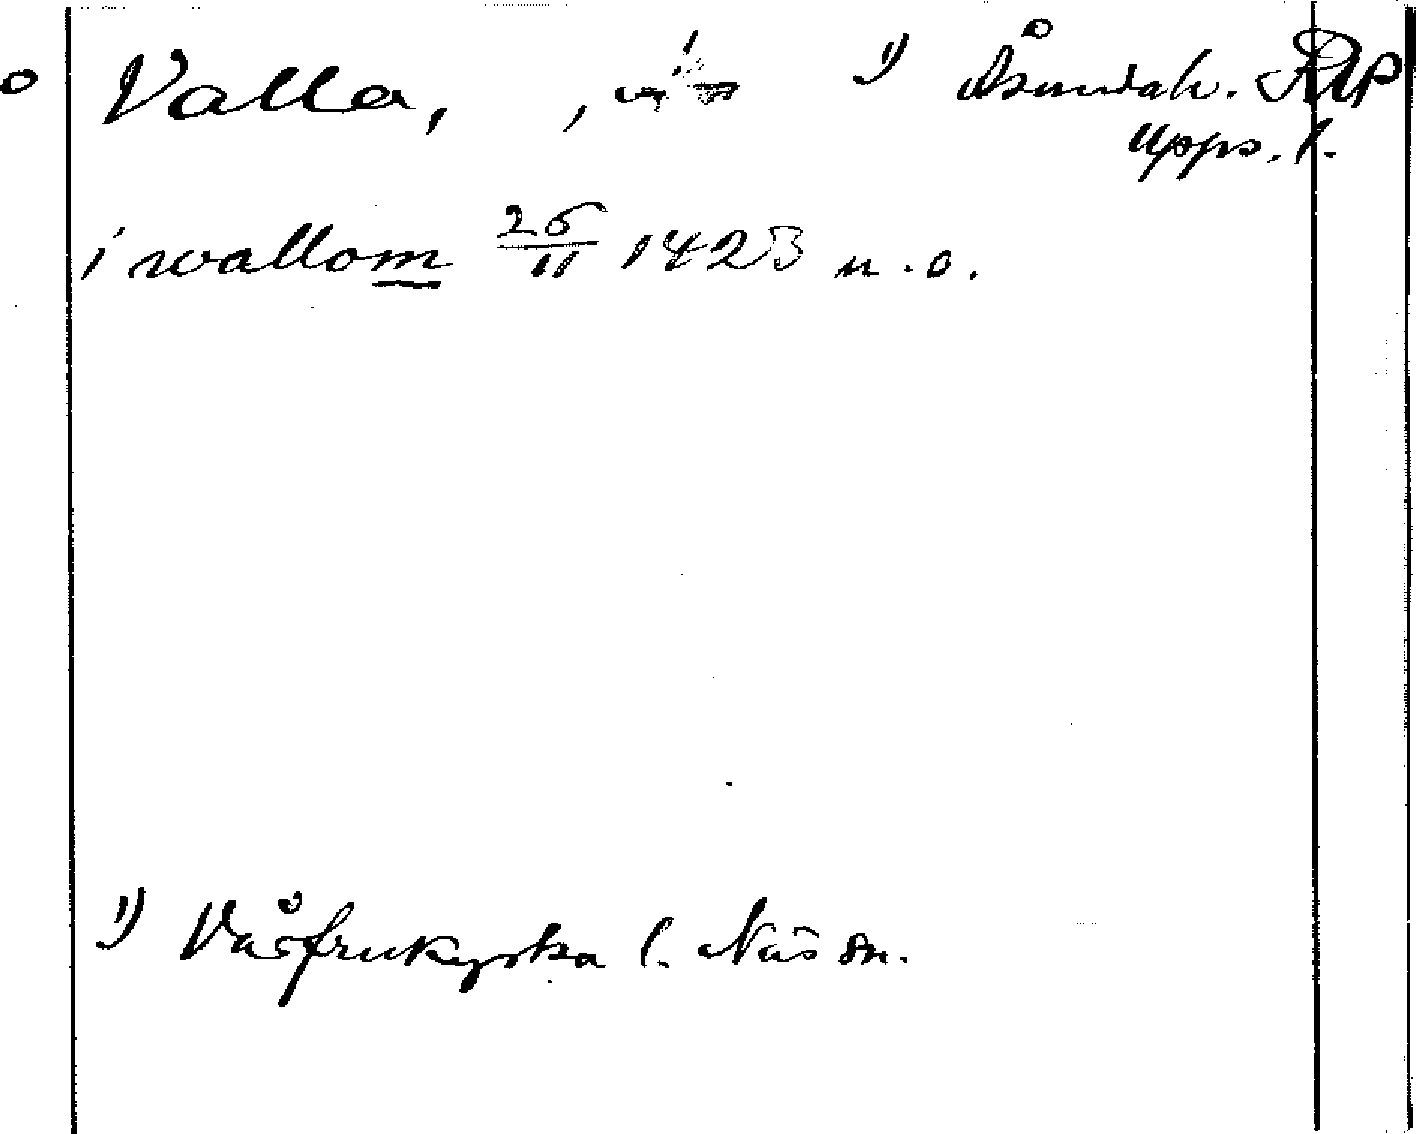 Valla, , 1) Åsundah. RAP
Upps. l.
i wallom 25/11 1423 u. o.
1) Vårfrukyrka l. Näs sn.